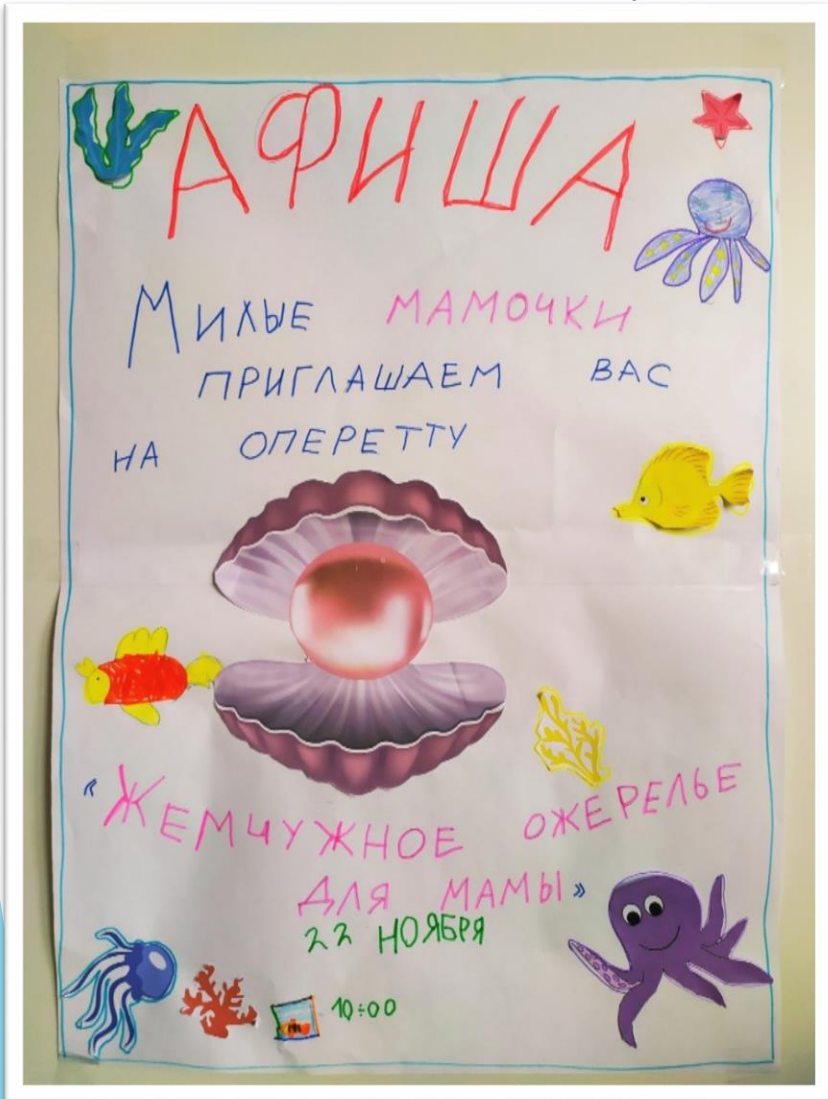 АФИША
Милые мамочки
приглашаем вас
на оперетту
«Жемчужное ожерелье
для мамы»
22 ноября
10:00